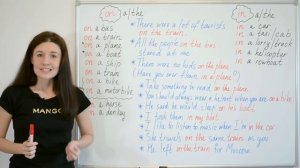 on a/the
on a bus
on a train
on a plane
on a boat
on a ship
on a tram
on a bike
on a motorbike
a horse
on a donkey
MANGO
* There were a lot of tourists
on the train.
* All the people on the bus
stared at me
* There were no on the plane.
(Have you ever flown in a plane?)
* Take something to read on the plane.
* You should always wear a helmet when you are on a bike
* He said he would sleep on his boat.
* I took them in my boat
* I like to listen to music when I'm in the car
* She travels on the same tram as you
* He left on the train for Moscow
in a/the
in a car
in a taxi/cab
in a lorry/truck
in a helicopter
in a rowboat